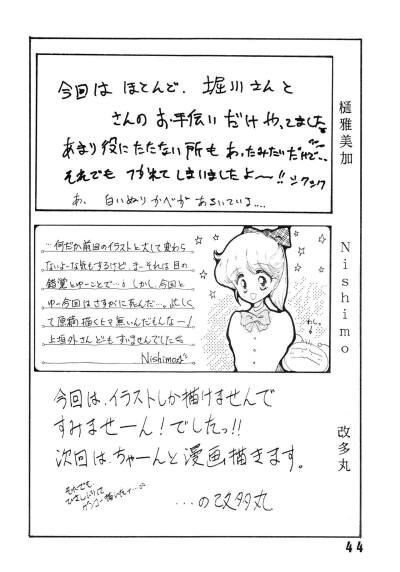 今回は ほとんど、堀川さんと
さんの お手伝いだけ やってました
あまり役にたたない所も あったみたいだけど…
それでも つかれてしまいましたよ〜!!
あ、白いぬりかべが あるいている....
樋雅美加
…何だか前回のイラストと大して変わら
ないよーな気もするけど、まーそれは目の
錯覚とゆーことで…。しかし、今回と
ゆー今回はさすがに死んだ…。忙しく
て原稿描くヒマ無いんだもんなー!
上垣外さんどもすいませんでした
Nishimo
Nishimo
今回は、イラストしか描けませんで
すみませーん!でしたっ!!
次回は、ちゃーんと漫画描きます。
…の改多丸
改多丸
44